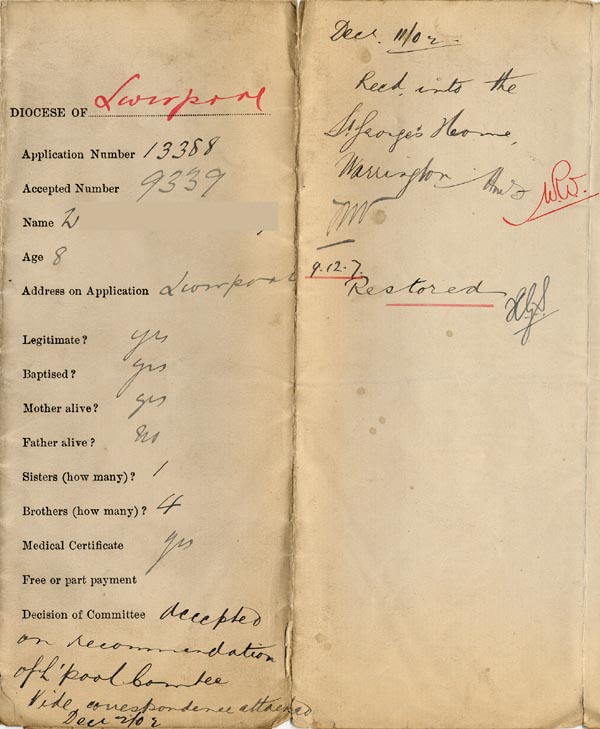 DIOCESE OF Liverpool
Application Number 13388
Accepted Number 9339
Name
Age 8
Address on Application Liverpool
Legitimate? yes
Baptised? yes
Mother alive? yes
Father alive? No
Sisters (how many)? 1
Brothers (how many)? 4
Medical Certificate yes
Free or part payment
Decision of Committee accepted
on recommendation
of L'pool Comtee
Vide correspondence attached
Decr 2/02
Decr. 11/02
Recd. into the
St. George's Home,
Warrington
9.12.7.
Restored